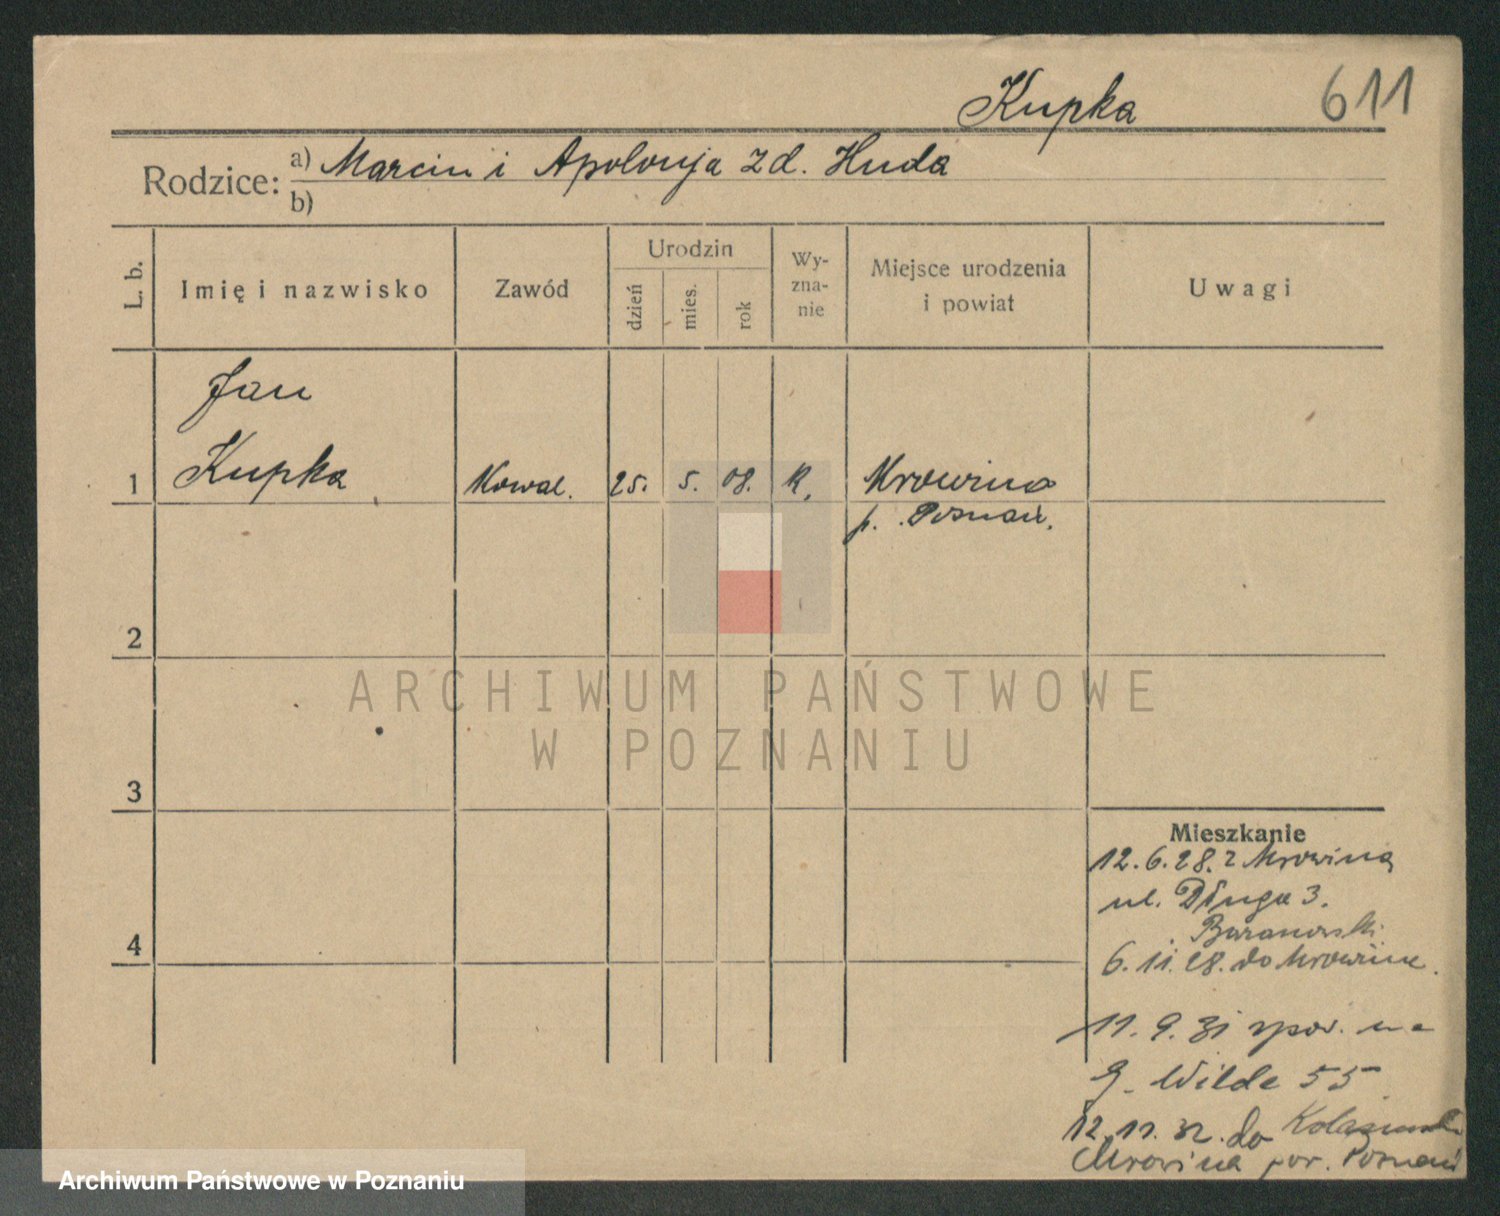 Kupka 611
Rodzice: a) Marcin i Apolonja zd. Huda
b)
L. b. Imię i nazwisko Zawód Urodzin dzień mies. rok Wy-zna-nie Miejsce urodzenia i powiat Uwagi
Jan
1 Kupka Kowal. 25. 5. 08. K. Mrowino
p. Poznań.
2
ARCHIWUM PAŃSTWOWE
W POZNANIU
3
Mieszkanie
12.6.28. z Mrowina
ul. Długa 3.
Baranowski
4
6.11.28. do Mrowina.
11.9.31 spow. na
G. Wilda 55
12.11.32. do
Mrowina pow. Poznań
Archiwum Państwowe w Poznaniu